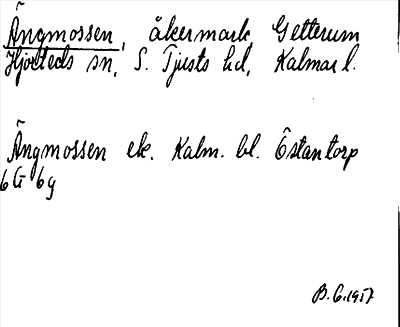 Ängmossen, åkermark, Getterum
Hjorteds sn, S. Tjusts hd, Kalmar l.
Ängmossen ek. Kalm. bl. Östantorp
6 G 6 g
B.G. 1957